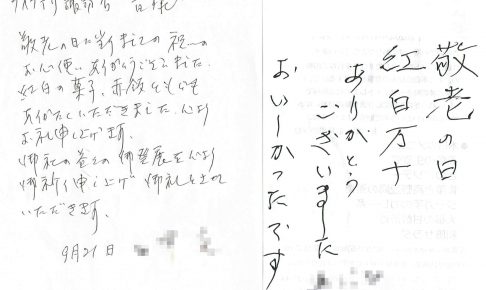 皆様
敬老の日に当りましての祝いの
お心使いありがとうございました.
紅白の菓子、赤飯ともども
ありがたくいただきました. 心より
お礼申し上げます.
御社の益々の御発展を心より
御祈り申し上げ 御礼とさせ
いただきます.
9月21日
敬老の日
紅白万十
ありがとう
ございました
おいしかったです